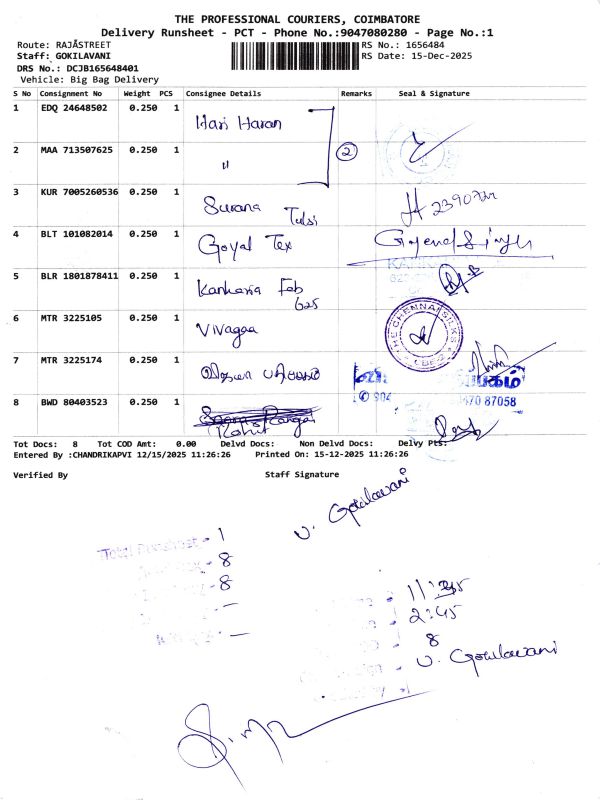 THE PROFESSIONAL COURIERS, COIMBATORE
Delivery Runsheet - PCT - Phone No.:9047080280 - Page No.:1
Route: RAJÅSTREET
RS No.: 1656484
Staff: GOKILAVANI
RS Date: 15-Dec-2025
DRS No.: DCJB165648401
Vehicle: Big Bag Delivery
S No Consignment No Weight PCS Consignee Details Remarks Seal & Signature
1 EDQ 24648502 0.250 1 Hari Haran
2 MAA 713507625 0.250 1 " 2
3 KUR 7005260536 0.250 1 Surana Tulsi
4 BLT 101082014 0.250 1 Goyal Tex Gajend Singh
5 BLR 1801878411 0.250 1 Kankaria Fab 625
6 MTR 3225105 0.250 1 Vivagaa THE CHENNAI SILKS
7 MTR 3225174 0.250 1
8 BWD 80403523 0.250 1 Rohit
Tot Docs: 8 Tot COD Amt: 0.00 Delvd Docs: Non Delvd Docs: Delvy Pts:
Entered By :CHANDRIKAPVI 12/15/2025 11:26:26 Printed On: 15-12-2025 11:26:26
Verified By Staff Signature
V. Gokilavani
Total Runsheet - 1
- 8
- 8
2:45
8
V. Gokilavani